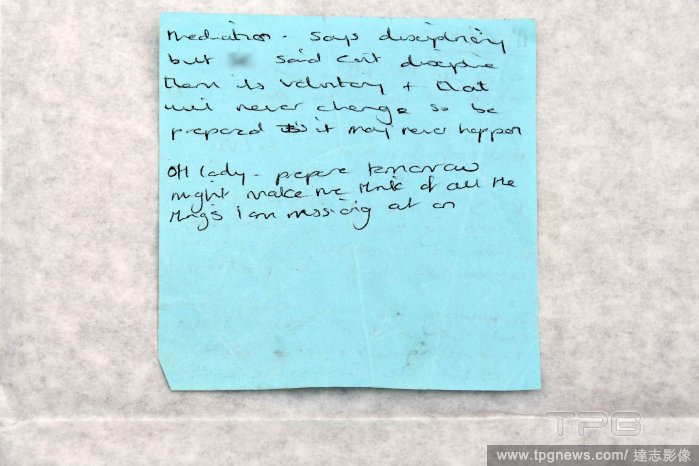 mediation - says disciplinary
but said can't discipline
them its voluntary + that
will never change so be
prepared it may never happen
OH lady - prepare tomorrow
might make me think of all the
things I am missing at on
TPG
www.tpgnews.com/ 達志影像